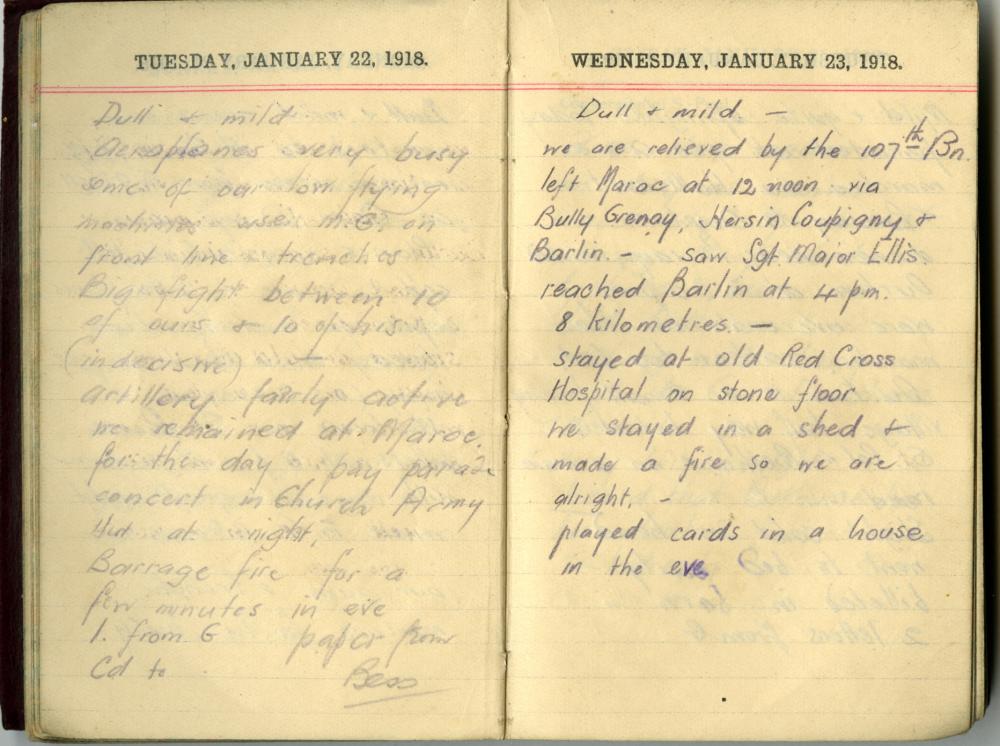 TUESDAY, JANUARY 22, 1918.
Dull & mild
Aeroplanes very busy
some of our low flying
machines use M.G. on
front line trenches
Big fight between 10
of ours & 10 of
(indecisive)
artillery fairly active
we remained at Maroc.
for the day pay parade
concert in Church Army
Hut at night,
Barrage fire for a
few minutes in eve
1. from G paper from
Cd to Bess
WEDNESDAY, JANUARY 23, 1918.
Dull & mild —
we are relieved by the 107th Bn.
left Maroc at 12 noon via
Bully Grenay, Hersin Coupigny &
Barlin. - saw Sgt. Major Ellis.
reached Barlin at 4 pm.
8 kilometres. —
stayed at old Red Cross
Hospital on stone floor
we stayed in a shed &
made a fire so we are
alright. -
played cards in a house
in the eve